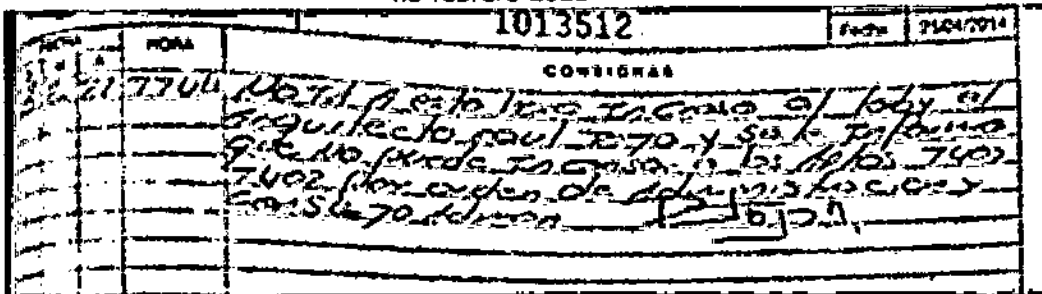 1013512
Fecha 21/04/2014
HORA
CONSIGNAS
21 1744 Nota A esta hora Ingreso al loby el
arquitecto paul y se le Informa
que No puede Ingresar a los Aptos 7401
7402 por orden de Administracion y
Consejo Admon